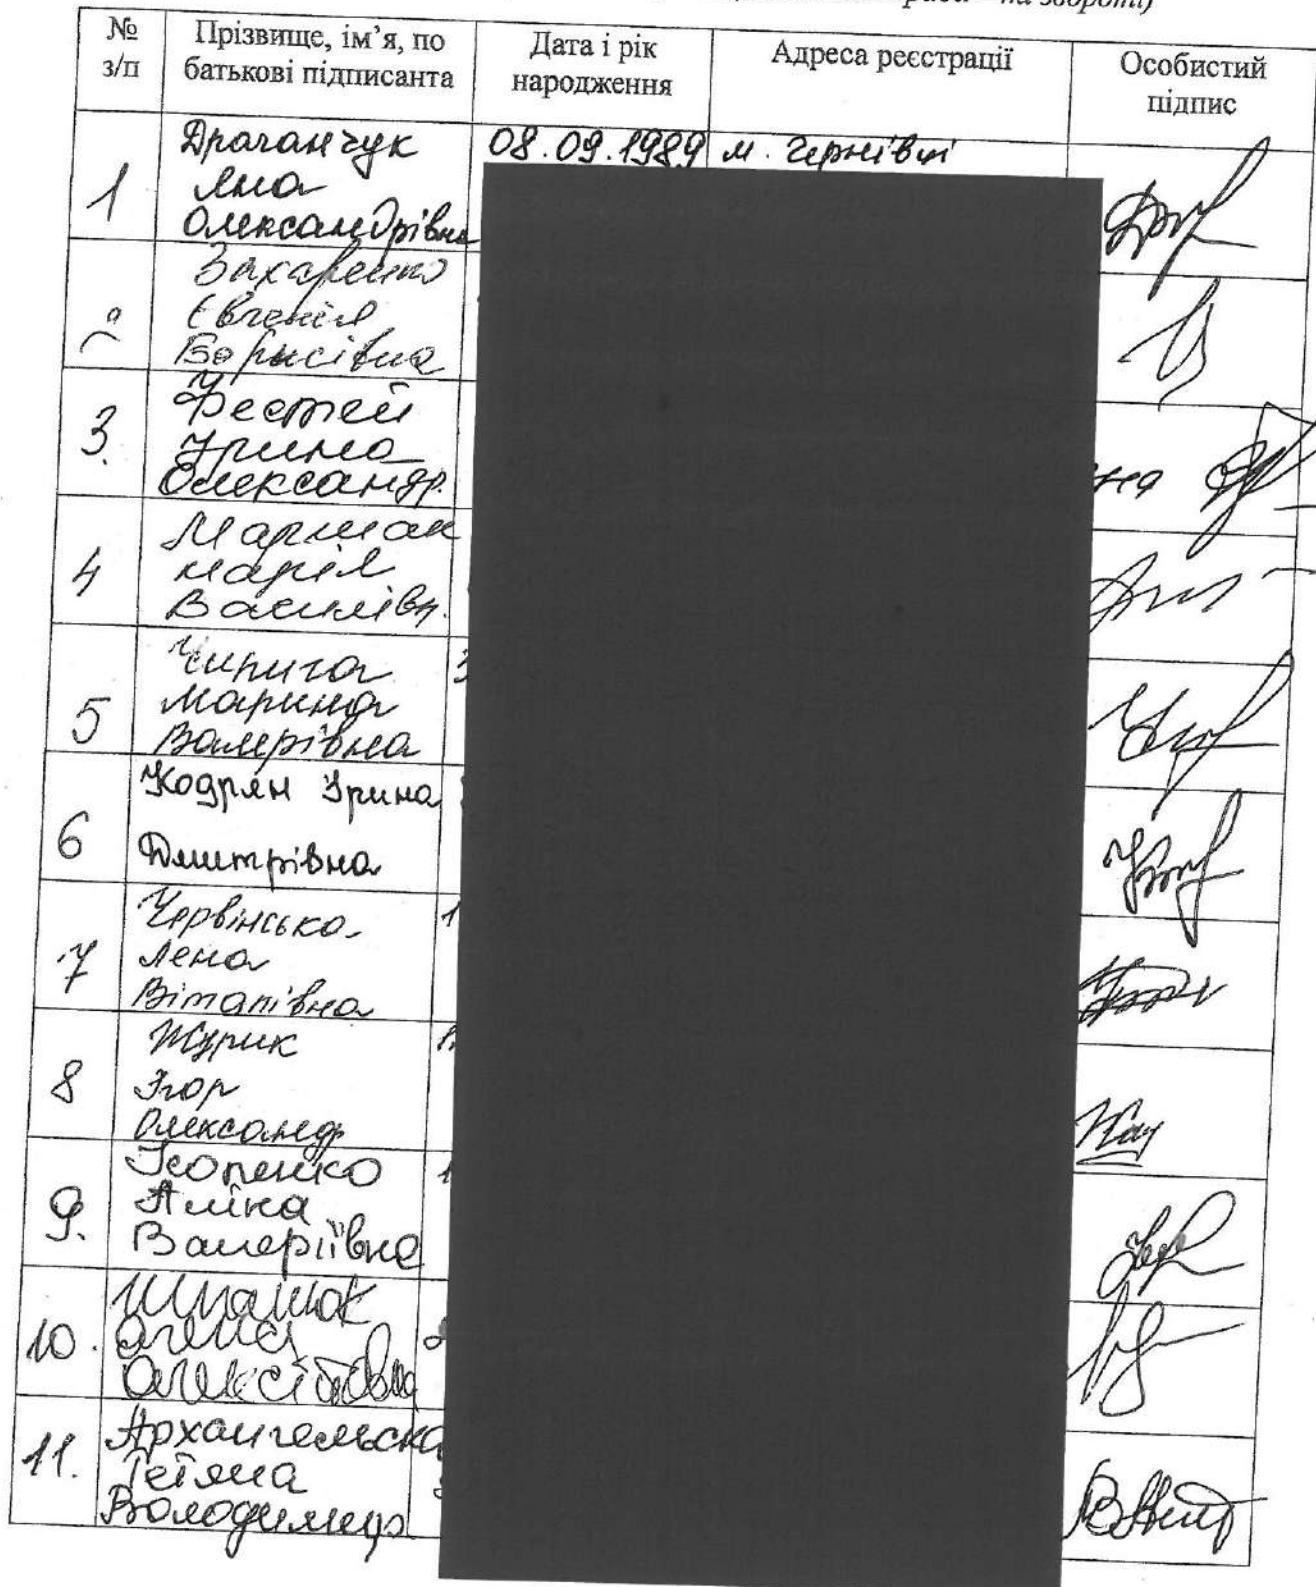 на звороті)
№ з/п
Прізвище, ім’я, по батькові підписанта
Дата і рік народження
Адреса реєстрації
Особистий підпис
1
Драганчук
Яна
Олександрівна
08.09.1989
м. Чернівці
2
Захаренко
Євгенія
Борисівна
3.
Фестей
Ірина
Олександр.
на
4
Маршак
Марія
Василівн.
5
Чипига
Марина
Валерівна
6
Кодрян Ірина
Дмитрівна
7
Червінська
Лена
Віталівна
8
Журик
Ігор
Олександр
9.
Аліна
Валеріївна
10.
Олексіївна
11.
Архангельська
Тетяна
Володимир